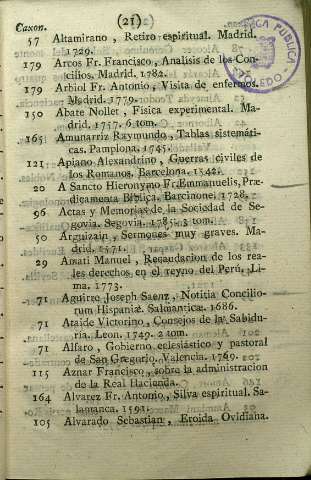 Caxon. (21)
57 Altamirano, Retiro espiritual. Madrid.
1729.
179 Arcos Fr. Francisco, Analisis de los Con-
cilios. Madrid. 1782.
179 Arbiol Fr. Antonio, Visita de enfermos.
Madrid. 1779.
150 Abate Nollet, Fisica experimental. Ma-
drid. 1757. 6 tom.
165 Amunarriz Raymundo, Tablas sistemáti-
cas. Pamplona. 1745.
121 Apiano Alexandrino, Guerras civiles de
los Romanos. Barcelona. 1542.
20 A Sancto Hieronymo Fr. Emmanuelis, Præ-
dicamenta Bíblica. Barcinone. 1728.
96 Actas y Memorias de la Sociedad de Se-
govia. Segovia. 1785. 3 tom.
50 Arguizain, Sermones muy graves. Ma-
drid. 1571.
29 Amati Manuel, Recaudacion de los rea-
les derechos en el reyno del Perú. Li-
ma. 1773.
71 Aguirre Joseph Saenz, Notitia Concilio-
rum Hispaniæ. Salmanticæ. 1686.
71 Ataide Victorino, Consejos de la Sabidu-
ria. Leon. 1749. 2 tom.
71 Alfaro, Gobierno eclesiástico y pastoral
de San Gregorio. Valencia. 1769.
115 Aznar Francisco, sobre la administracion
de la Real Hacienda.
164 Alvarez Fr. Antonio, Silva espiritual. Sa-
lamanca. 1591.
105 Alvarado Sebastian, Eroida Ovidiana.
PUBLICA